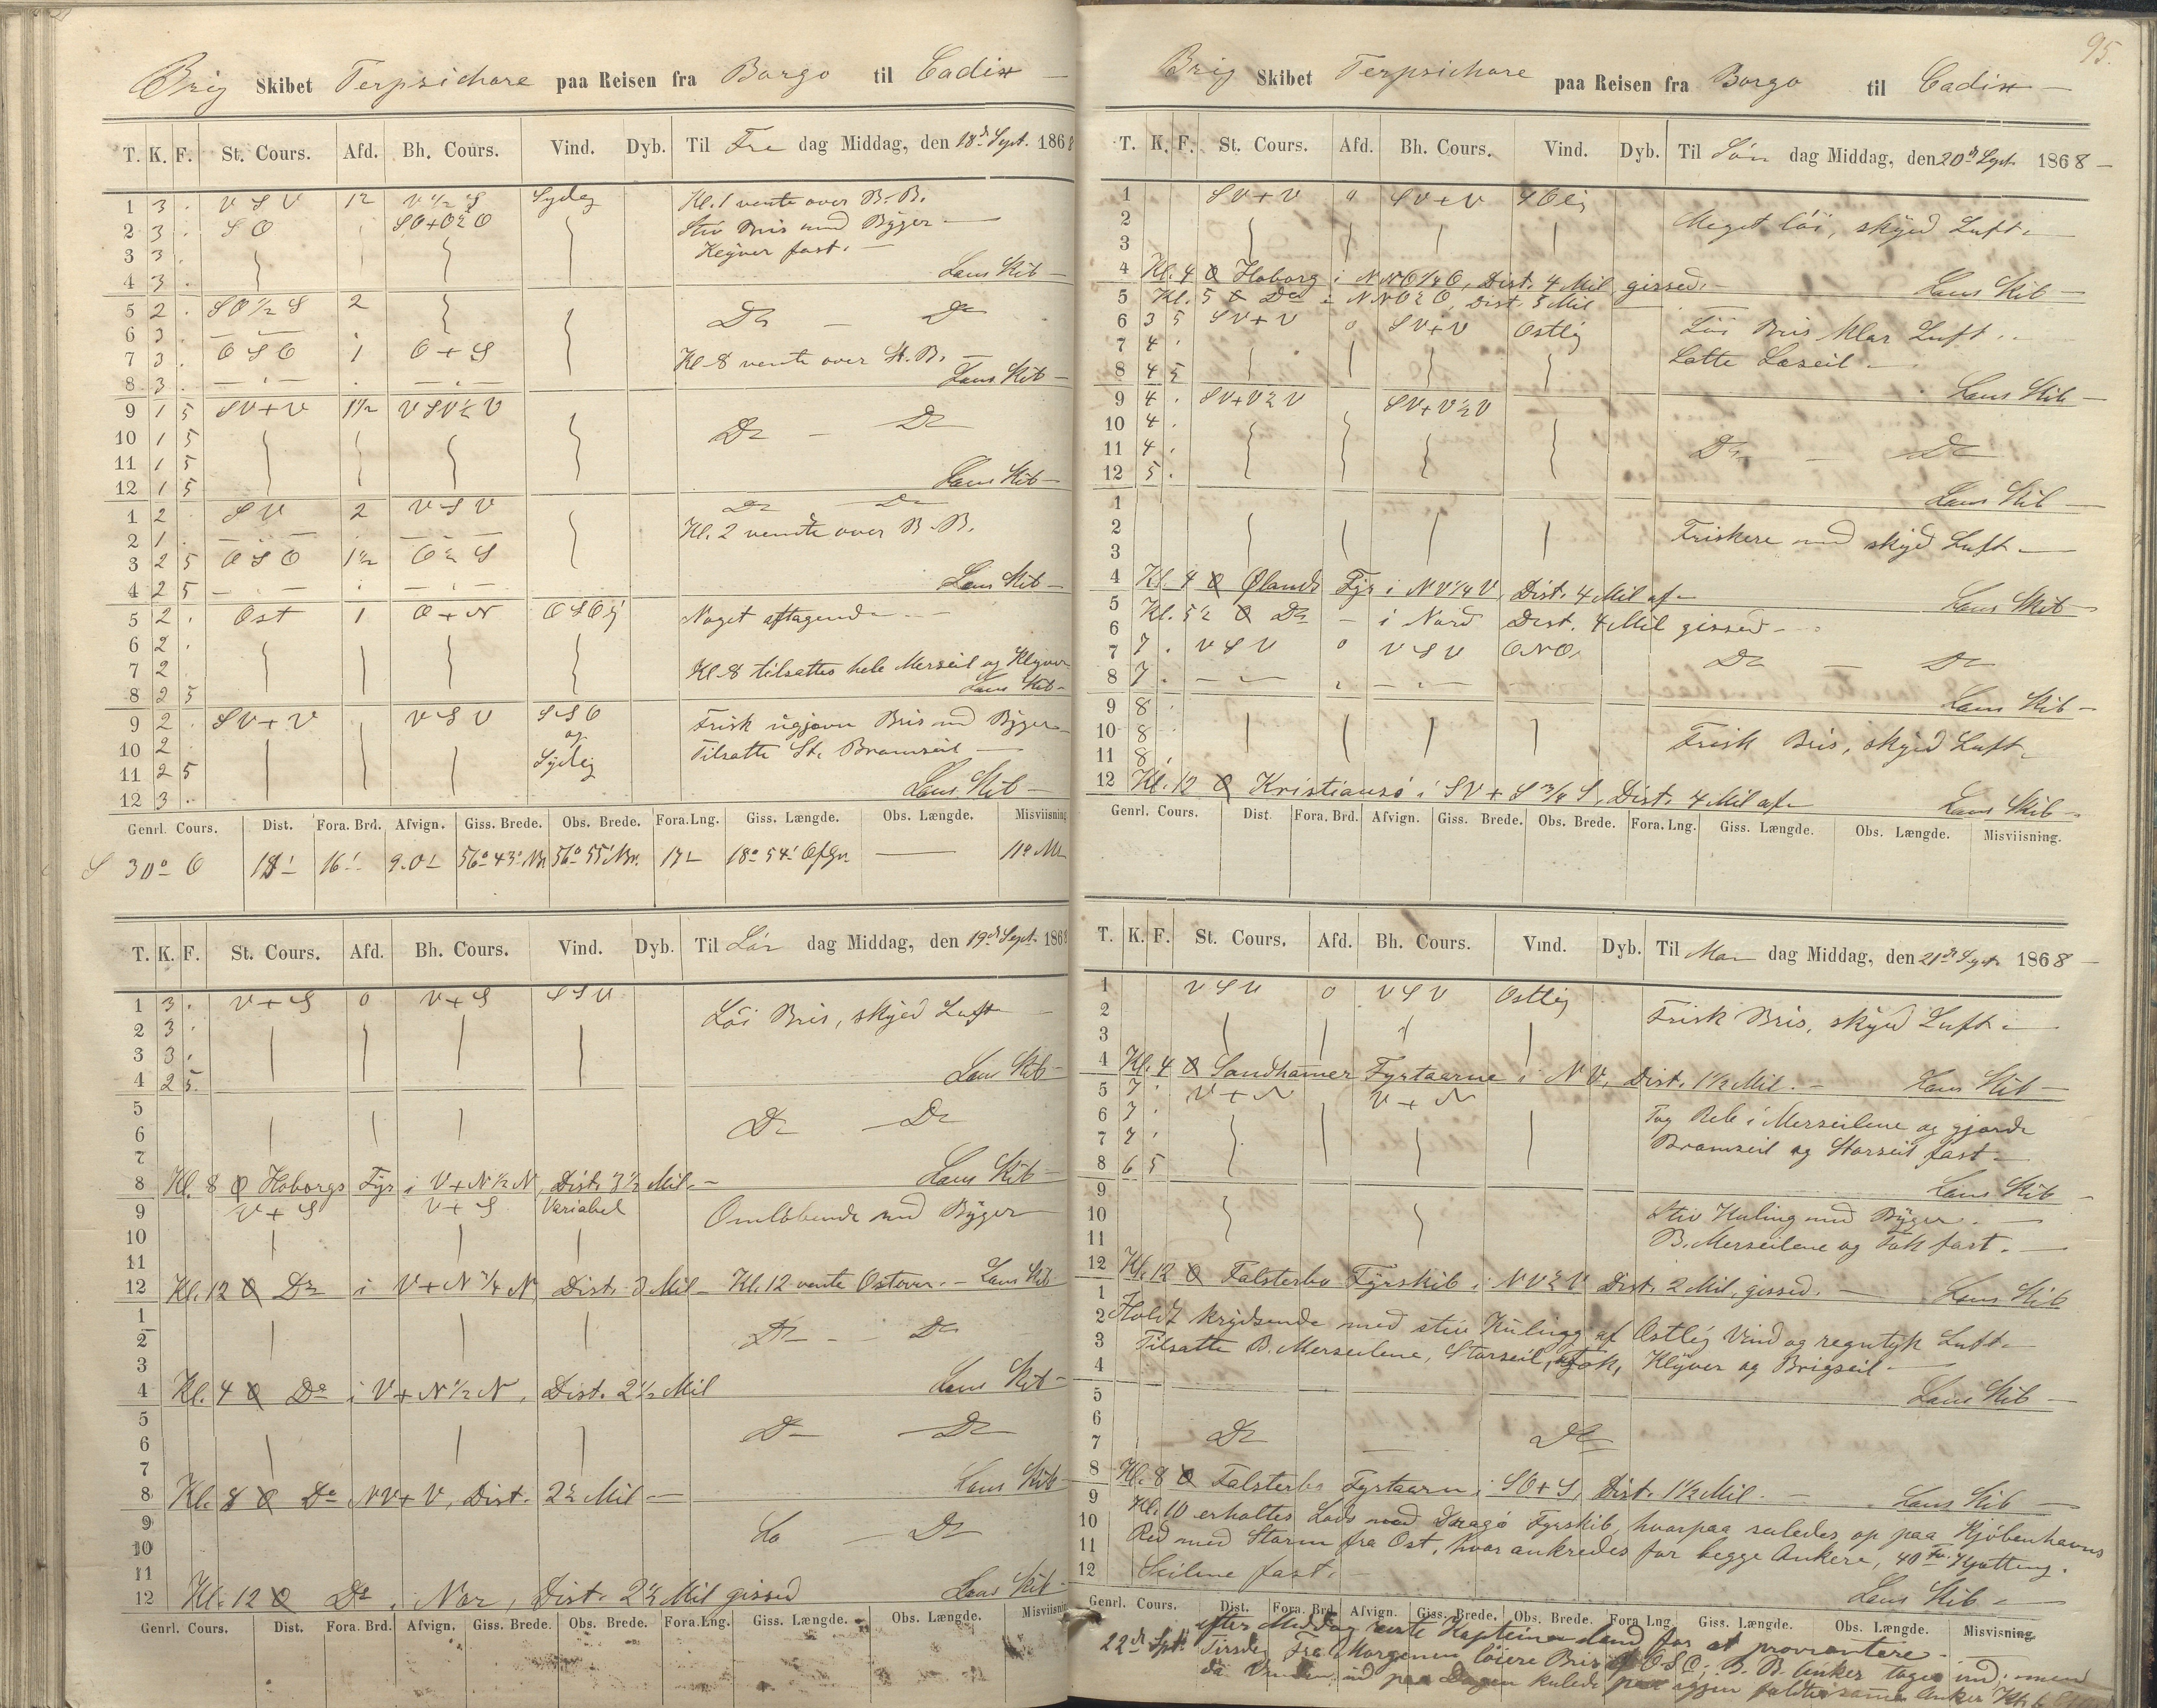 Brig Skibet Terpsichore paa Reisen fra Borgo til Cadix
T. K. F. St. Cours. Afd. Bh. Cours. Vind. Dyb. Til Fre dag Middag, den 18de Sept. 1868
1 3 . V S V 12 V 1/2 S Sydlig Kl. 1 vente over B.B.
2 3 . S O SO+O½O Stiv Bris med Byger
3 3 . Klyver fast.
4 3 . Lens Skib
5 2 . SO 1/2 S 2 Do Do
6 3 .
7 3 . O S O 1 O+S Kl. 8 vente over St. B.
8 3 . Lens Skib
9 1 5 SV+V 1½ VSV½V
10 1 5 Do Do
11 1 5
12 1 5 Lens Skib
1 2 SV 2 VSV Do Do
2 1 . Kl. 2 vendte over B.B.
3 2 5 O S O 1½ O½S
4 2 5 Lens Skib
5 2 . Ost 1 O+N OSOlig Noget aftagende
6 2 .
7 2 . Kl. 8 tilsattes hele Merseil og Klyver
8 2 5 Lens Skib
9 2 . SV+V VSV SSO Frisk ugjævn Bris med Byger
10 2 og Tilsatte St. Bramseil
11 2 5 Sydlig
12 3 . Lens Skib
Genrl. Cours. Dist. Fora. Brd. Afvign. Giss. Brede. Obs. Brede. Fora. Lng. Giss. Længde. Obs. Længde. Misviisning
S 30° O 18' 16' 9.0' 56° 43' Nr. 56° 55' Nr. 17' 18° 54' OfGr. 11°
T. K. F. St. Cours. Afd. Bh. Cours. Vind. Dyb. Til Lör dag Middag, den 19de Sept. 1868
1 3 . V+S 0 V+S SSV
2 3 . Löi Bris, skyed Luft
3 3 .
4 2 5 Lens Skib
5
6 Do Do
7
8 Kl. 8 Hoborgs Fyr i V+N½N, Dist. 3½ Mil. Lens Skib
9 V+S V+S Variabel Omlöbende med Byger
10
11
12 Kl. 12 Do i V+N¾N Dist. 3 Mil Kl. 12 vente Ostover. Lens Skib
1
2 Do Do
3
4 Kl. 4 Do i V+N½N, Dist. 2½ Mil Lens Skib
5
6 Do Do
7
8 Kl. 8 Do NV+V, Dist. 2½ Mil Lens Skib
9 Do Do
10
11
12 Kl. 12 Do i Nor, Dist. 2½ Mil gissed Lens Skib
Genrl. Cours. Dist. Fora. Brd. Afvign. Giss. Brede. Obs. Brede. Fora. Lng. Giss. Længde. Obs. Længde. Misviisning
95.
Brig Skibet Terpsichore paa Reisen fra Borgo til Cadix
T. K. F. St. Cours. Afd. Bh. Cours. Vind. Dyb. Til Sön dag Middag, den 20de Sept. 1868
1 SV+V 0 SV+V SOlig
2 Meget löi, skyed Luft
3
4 Kl. 4 Hoborg i NNO¼O, Dist. 4 Mil gissed. Lens Skib
5 Kl. 5 Do i NNO½O, Dist. 5 Mil
6 3 5 SV+V 0 SV+V Ostlig Löi Bris klar Luft
7 4 . Satte Læseil
8 4 5 Lens Skib
9 4 . SV+V½V SV+V½V
10 4 .
11 4 . Do Do
12 5 . Lens Skib
1
2 Friskere med skyed Luft
3
4 Kl. 4 Ølands Fyr i NV¼V, Dist. 4 Mil af Lens Skib
5 Kl. 5½ Do i Nord Dist. 4 Mil gissed
6
7 7 . VSV 0 VSV ONO Do Do
8 7 . Lens Skib
9 8
10 8 Frisk Bris, skyed Luft
11 8
12 Kl. 12 Kristiansö i SV+S¾S, Dist. 4 Mil af Lens Skib
Genrl. Cours. Dist Fora. Brd. Afvign. Giss. Brede. Obs. Brede. Fora. Lng. Giss. Længde. Obs. Længde. Misviisning.
T. K. F. St. Cours. Afd. Bh. Cours. Vind. Dyb. Til Man dag Middag, den 21de Sept. 1868
1 VSV 0 VSV Ostlig
2 Frisk Bris, skyed Luft
3
4 Kl. 4 Sandhamer Fyrtaarne i NV, Dist. 1½ Mil. Lens Skib
5 7 . V+N V+N
6 7 . Tog Reb i Merseilene og gjorde
7 7 . Bramseil og Storseil fast
8 6 5 Lens Skib
9
10 Stiv Kuling med Byger
11 B. Merseilene og Fok fast.
12 Kl. 12 Falsterbo Fyrskib i NV½V Dist. 2 Mil, gissed. Lens Skib
1
2 Holdt krydsende med stiv Kuling af Ostlig Vind og regntyk Luft
3 Tilsatte B. Merseilene, Storseil, Fok, Klyver og Brigseil
4 Lens Skib
5
6
7 Do Do
8 Kl. 8 Falsterbo Fyrtaarn i SO+S, Dist. 1½ Mil. Lens Skib
9 Kl. 10 erholtes Lods ved Dragö Fyrskib, hvorpaa seiledes op paa Kjöbenhavns
10 Red med Storm fra Ost, hvor ankredes for begge Ankere, 40 Fv. Kjætting.
11 Seilene fast.
12 Lens Skib
Genrl. Cours. Dist. Fora. Brd. Afvign. Giss. Brede. Obs. Brede. Fora Lng Giss. Længde. Obs. Længde. Misvisning
efter Middag reiste Kapteinen iland for at provrantere
22de Spt. Tirsdag Fra Morgenen löiere Bris af OSO; B. B. Anker toges ind; men
da Vinden ud paa Dagen kulede igjen faldt samme Anker Kl. 6